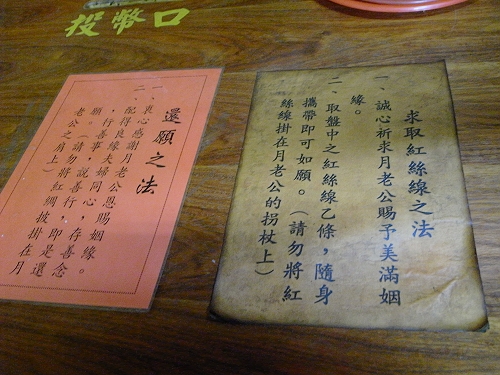 投幣口
還願之法
一、衷心感謝月老公恩賜姻緣。
二、配得良緣,夫婦同心,存善念
,行善事,說善行,即是還
願。(請勿將紅綢披掛在月
老公之肩上)
求取紅絲線之法
一、誠心祈求月老公賜予美滿姻
緣。
二、取盤中之紅絲線乙條,隨身
攜帶即可如願。(請勿將紅
絲線掛在月老公的拐杖上)